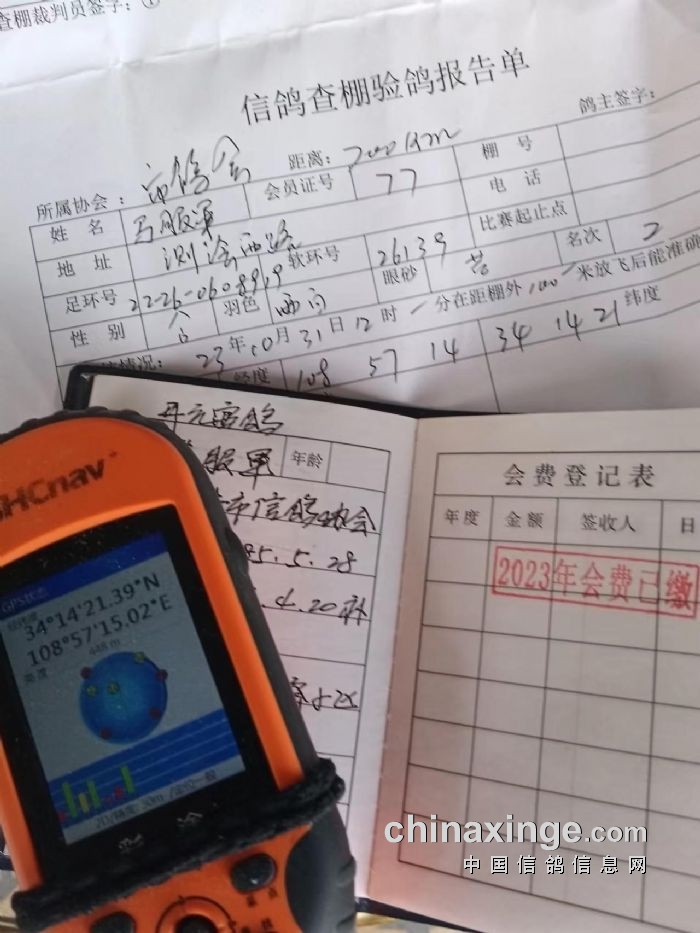 查棚裁判员签字:①
信鸽查棚验鸽报告单
鸽主签字:
所属协会: 市鸽会 距离: 700km
姓名 马服军 会员证号 77 棚号
地址 测绘西路 电话
足环号 22-26-0608919 软环号 26139 比赛起止点
性别 羽色 雨白 眼砂 黄 名次 2
情况: 23年10月31日12时 一分在距棚外100米放飞后能准确
经度 108 57 14 34 14 21 纬度
年龄
服军
市信鸽协会
85.5.28
.4.20补
会费登记表
年度 金额 签收人 日
2023年会费已缴
HCnav
GPS状态
34°14'21.39"N
108°57'15.02"E
448m
2D/精度: 30m /定位一般
chinaxinge.com
中国信鸽信息网